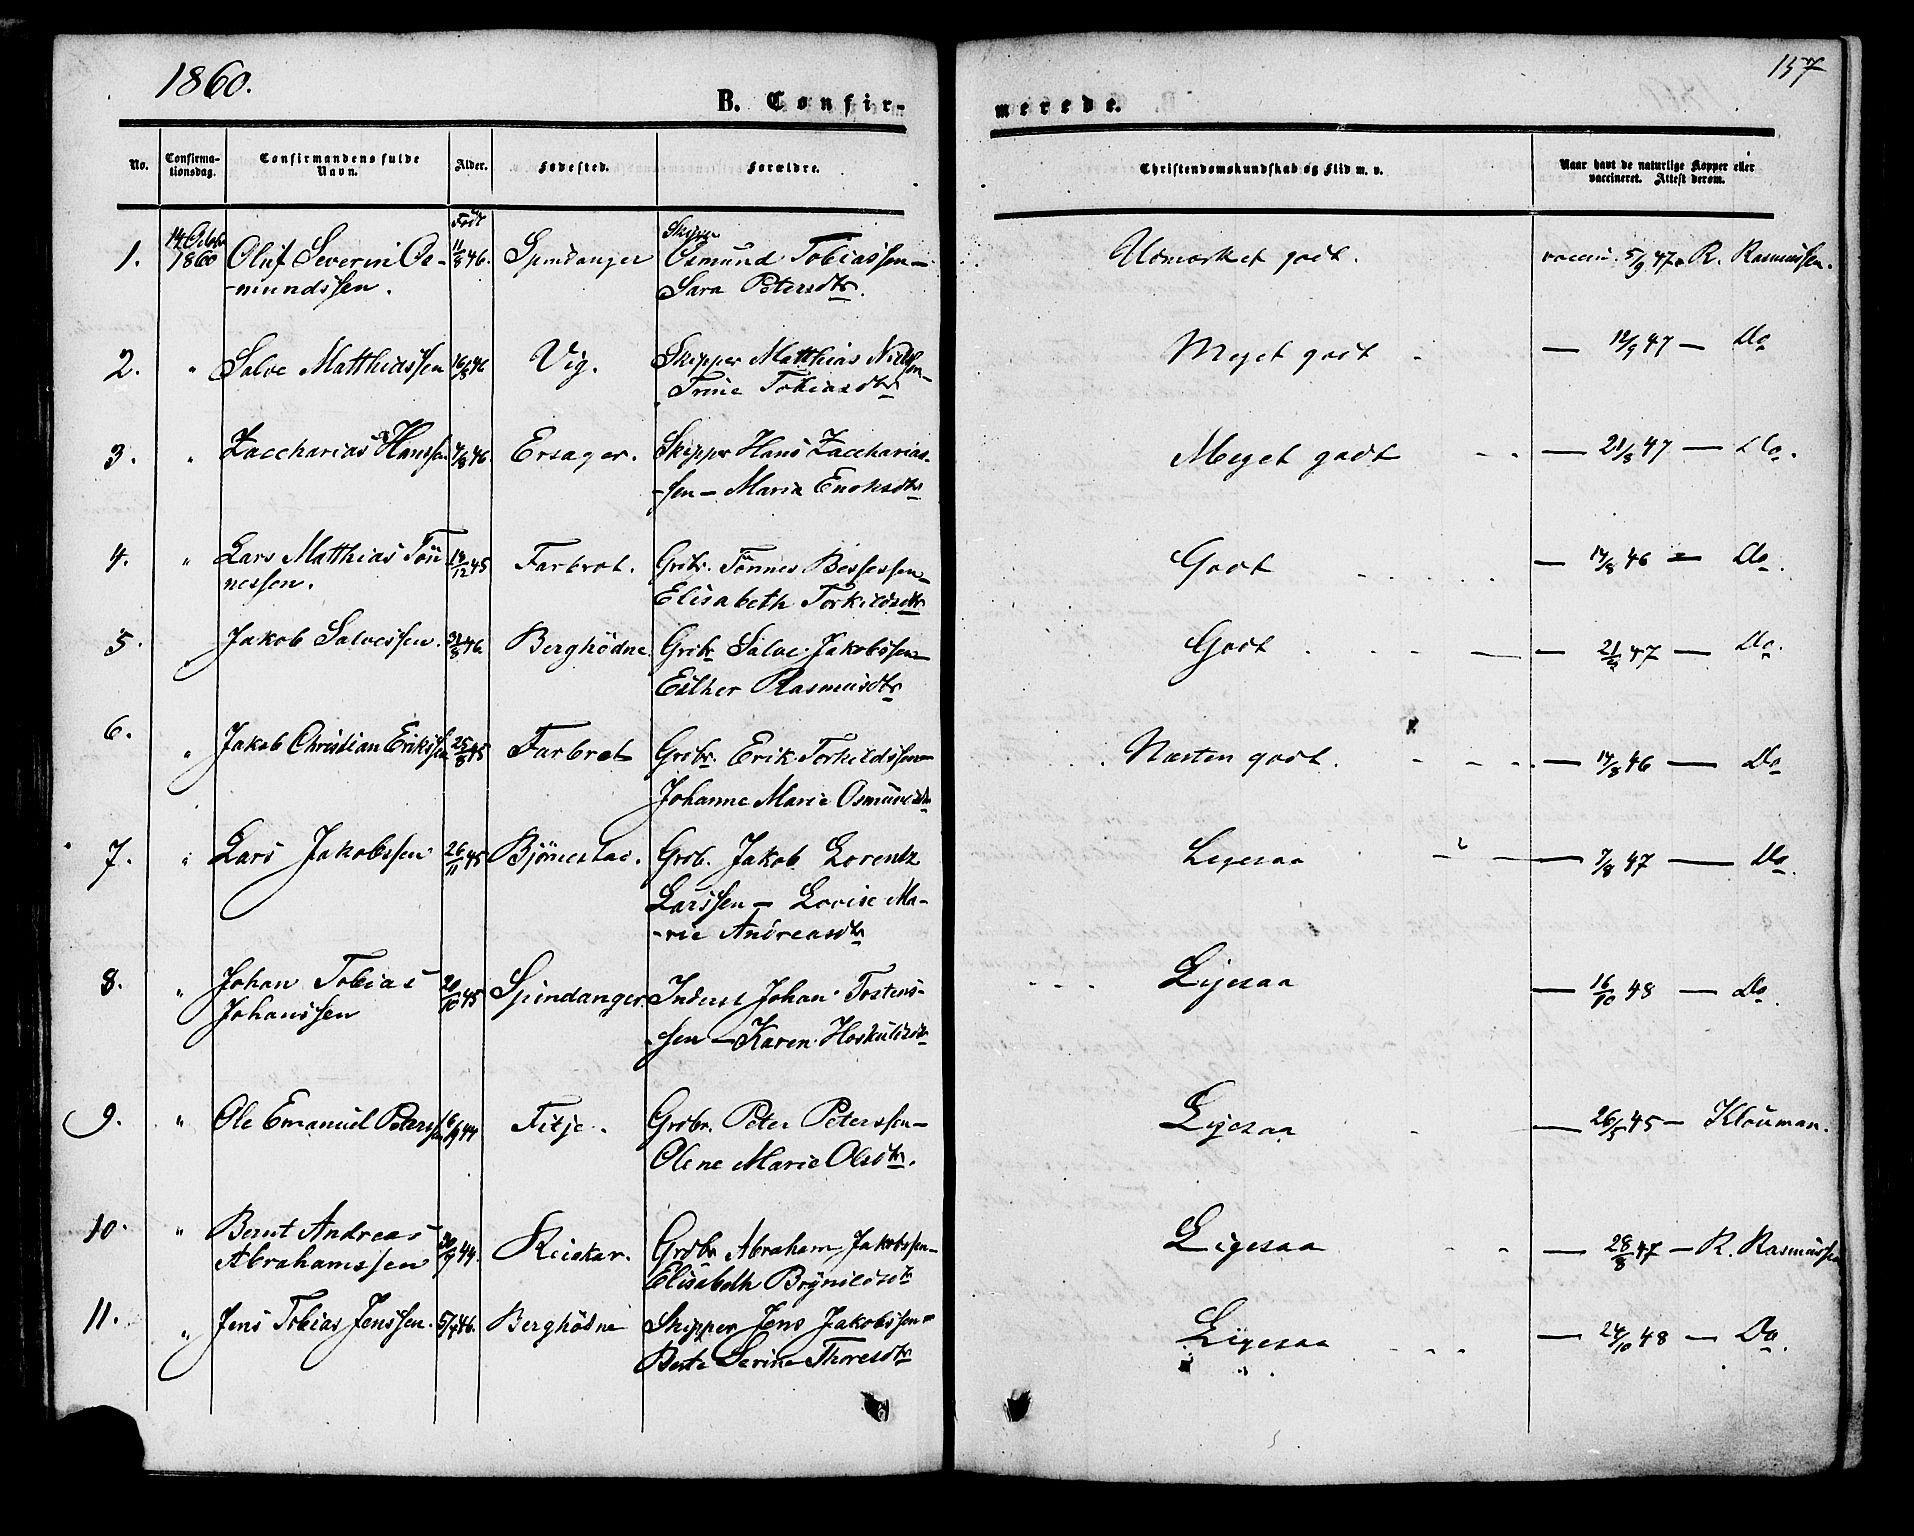 1860.
157
B. Confir-
merede.
No.
Confirma-
tionsdag.
Confirmandens fulde
Navn.
Alder.
Fødested.
Forældre.
Christendomskundskab og Flid m. v.
Naar havt de naturlige Kopper eller
vaccineret. Attest derom.
1. 14 Octobr 1860 Oluf Severin Os-
-mundssen. Født 11/8 46. Spindanger Skipper Osmund Tobiassen –
Sara Petersdtr. Udmærket godt. vaccin. 5/9 47 R. Rasmussen.
2. " Salve Matthiassen 16/8 46 Vig. Skipper Matthias Nielssen –
Trine Tobiasdtr Meget godt – 12/9 47 – Do
3. " Zaccharias Hanssen 4/8 46. Ersager. Skipper Hans Zaccharias-
-sen – Maria Enoksdtr Meget godt – 21/8 47 – Do.
4. " Lars Matthias Tön
nessen. 14/12 45 Farbrot. Grbr. Tönnes Bessessen –
Elisabeth Torkildsdtr Godt – 14/8 46 – Do.
5. " Jakob Salvessen. 31/8 46. Berghödne Grbr Salve Jakobssen –
Esther Rasmusdtr Godt – 47 – Do.
6. " Jakob Christian Erikssen 25/8 45 Farbrot Grbr. Erik Torkildssen –
Johanne Marie Osmundsdtr Næsten godt. – 14/8 46 – Do
7. " Lars Jakobssen 26/11 45 Björnestad. Grbr. Jakob Lorentz
Larssen – Lovise Ma-
-rie Andreasdtr Ligesaa – 7/8 47 – Do.
8. " Johan Tobias
Johanssen 20/10 45 Spindanger Inderst Johan Tostens-
-sen – Karen Hoskuldsdtr Ligesaa – 16/10 48 – Do.
9. " Ole Emanuel Peterssen 44 Fitje. Grbr. Peter Peterssen –
Olene Marie Olsdtr. Ligesaa – 26/5 45 – Klouman.
10. " Bernt Andreas
Abrahamssen 30/9 44. Grbr Abraham Jakobssen –
Elisabeth Brynildsdtr Ligesaa – 28/8 47 – R. Rasmussen
11. " Jens Tobias Jenssen. 5/4 46. Berghödne Skipper Jens Jakobssen –
Berte Serine Thoresdtr Ligesaa – 24/10 48 – Do.